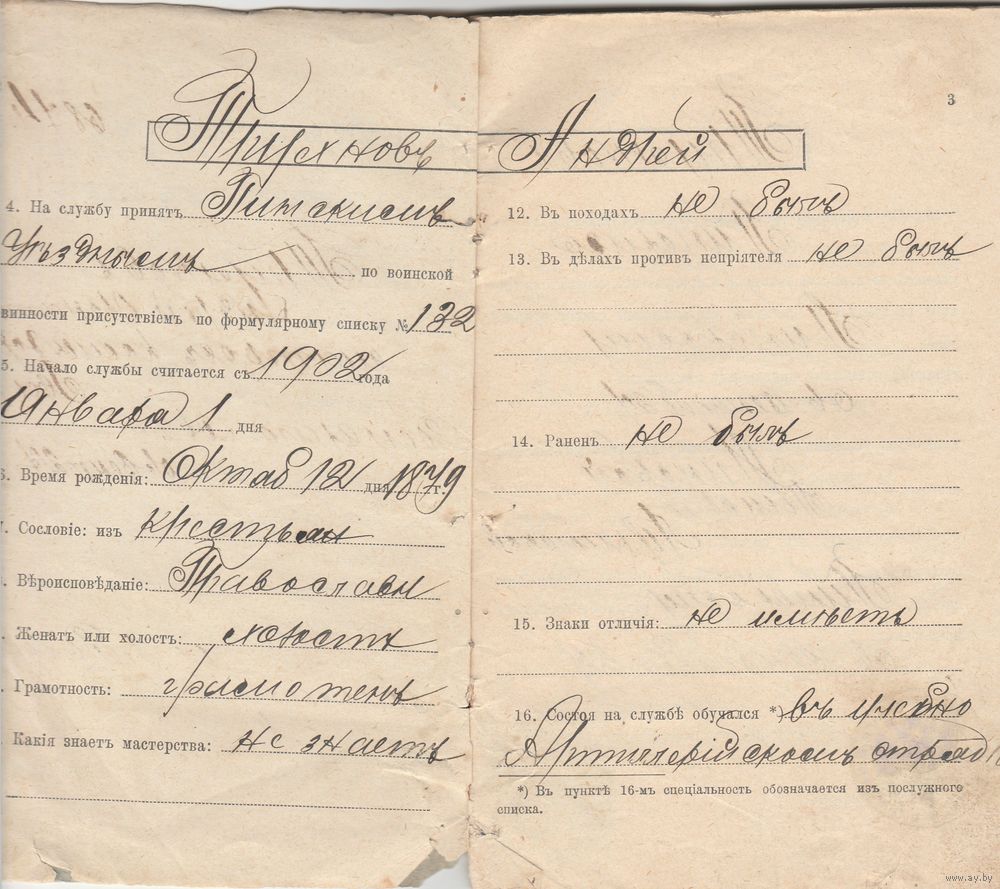 Трухновъ
4. На службу принятъ Пинскимъ
Уѣзднымъ по воинской
винности присутствіемъ по формулярному списку № 132
5. Начало службы считается съ 1902 года
Января 1 дня
6. Время рожденія: Октяб 12 дня 1879 г.
Сословіе: изъ крестьян
Вѣроисповѣданіе: Православн
Женатъ или холостъ: холостъ
Грамотность: грамотенъ
Какія знаетъ мастерства: не знаетъ
3
Андрей
12. Въ походахъ не былъ
13. Въ дѣлахъ противъ непріятеля не былъ
14. Раненъ не былъ
15. Знаки отличія: не имѣетъ
16. Состоя на службѣ обучался *) въ учебно
Артилерійскомъ отряд
*) Въ пунктѣ 16-мъ спеціальность обозначается изъ послужного
списка.
www.ay.by